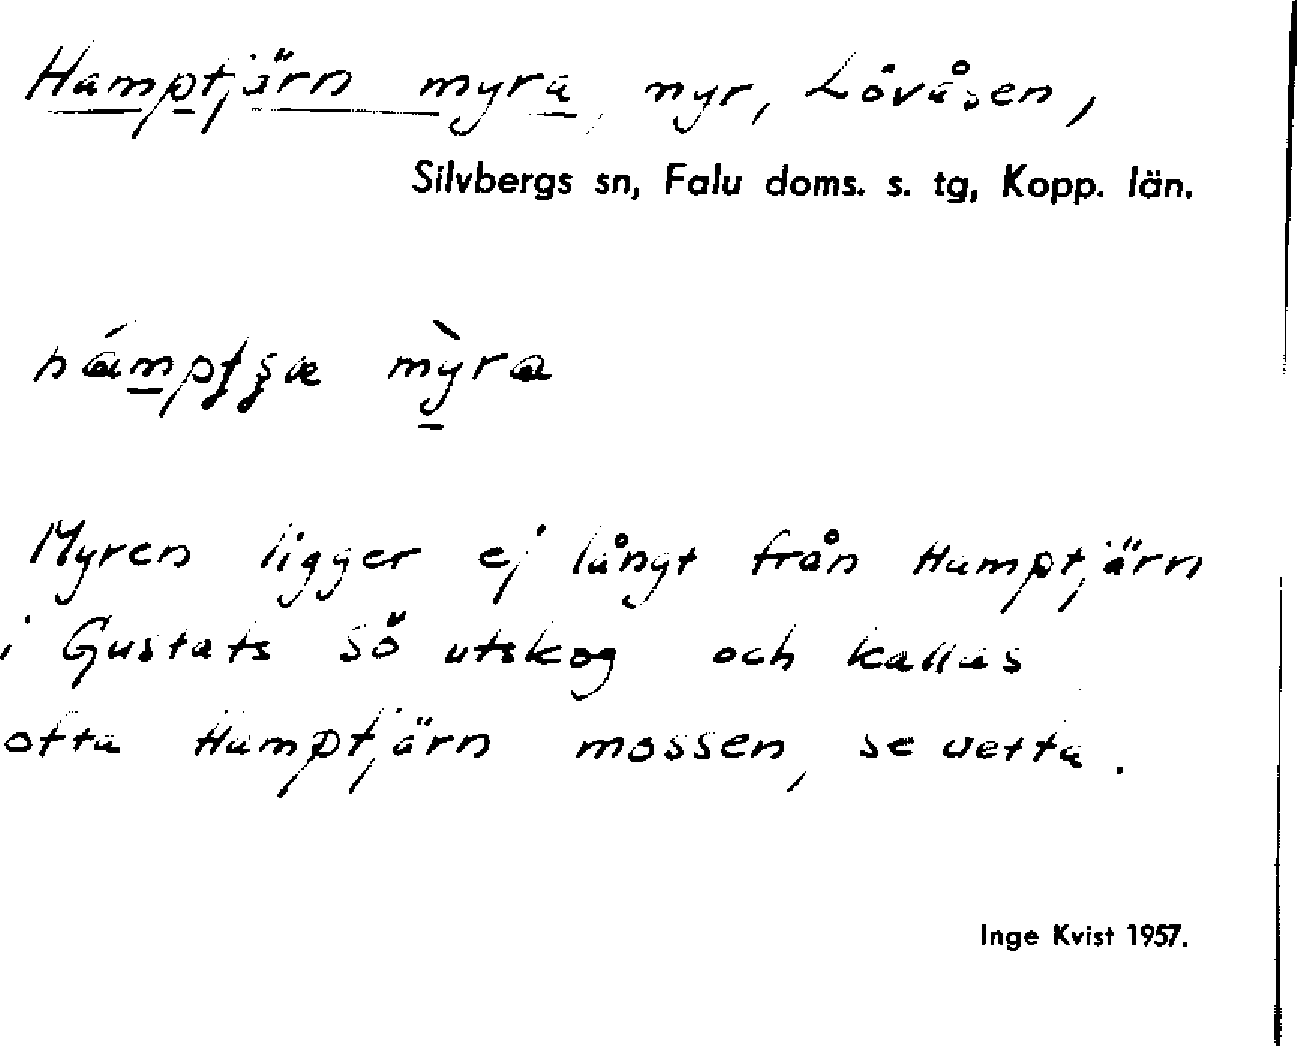 Hamptjärn myra, myr, Lövåsen,
Silvbergs sn, Falu doms. s. tg, Kopp. län.
myra
Myren ligger ej långt från Hamptjärn
i Gustafs sö utskog och kallas
ofta Hamptjärn mossen, se detta.
Inge Kvist 1957.